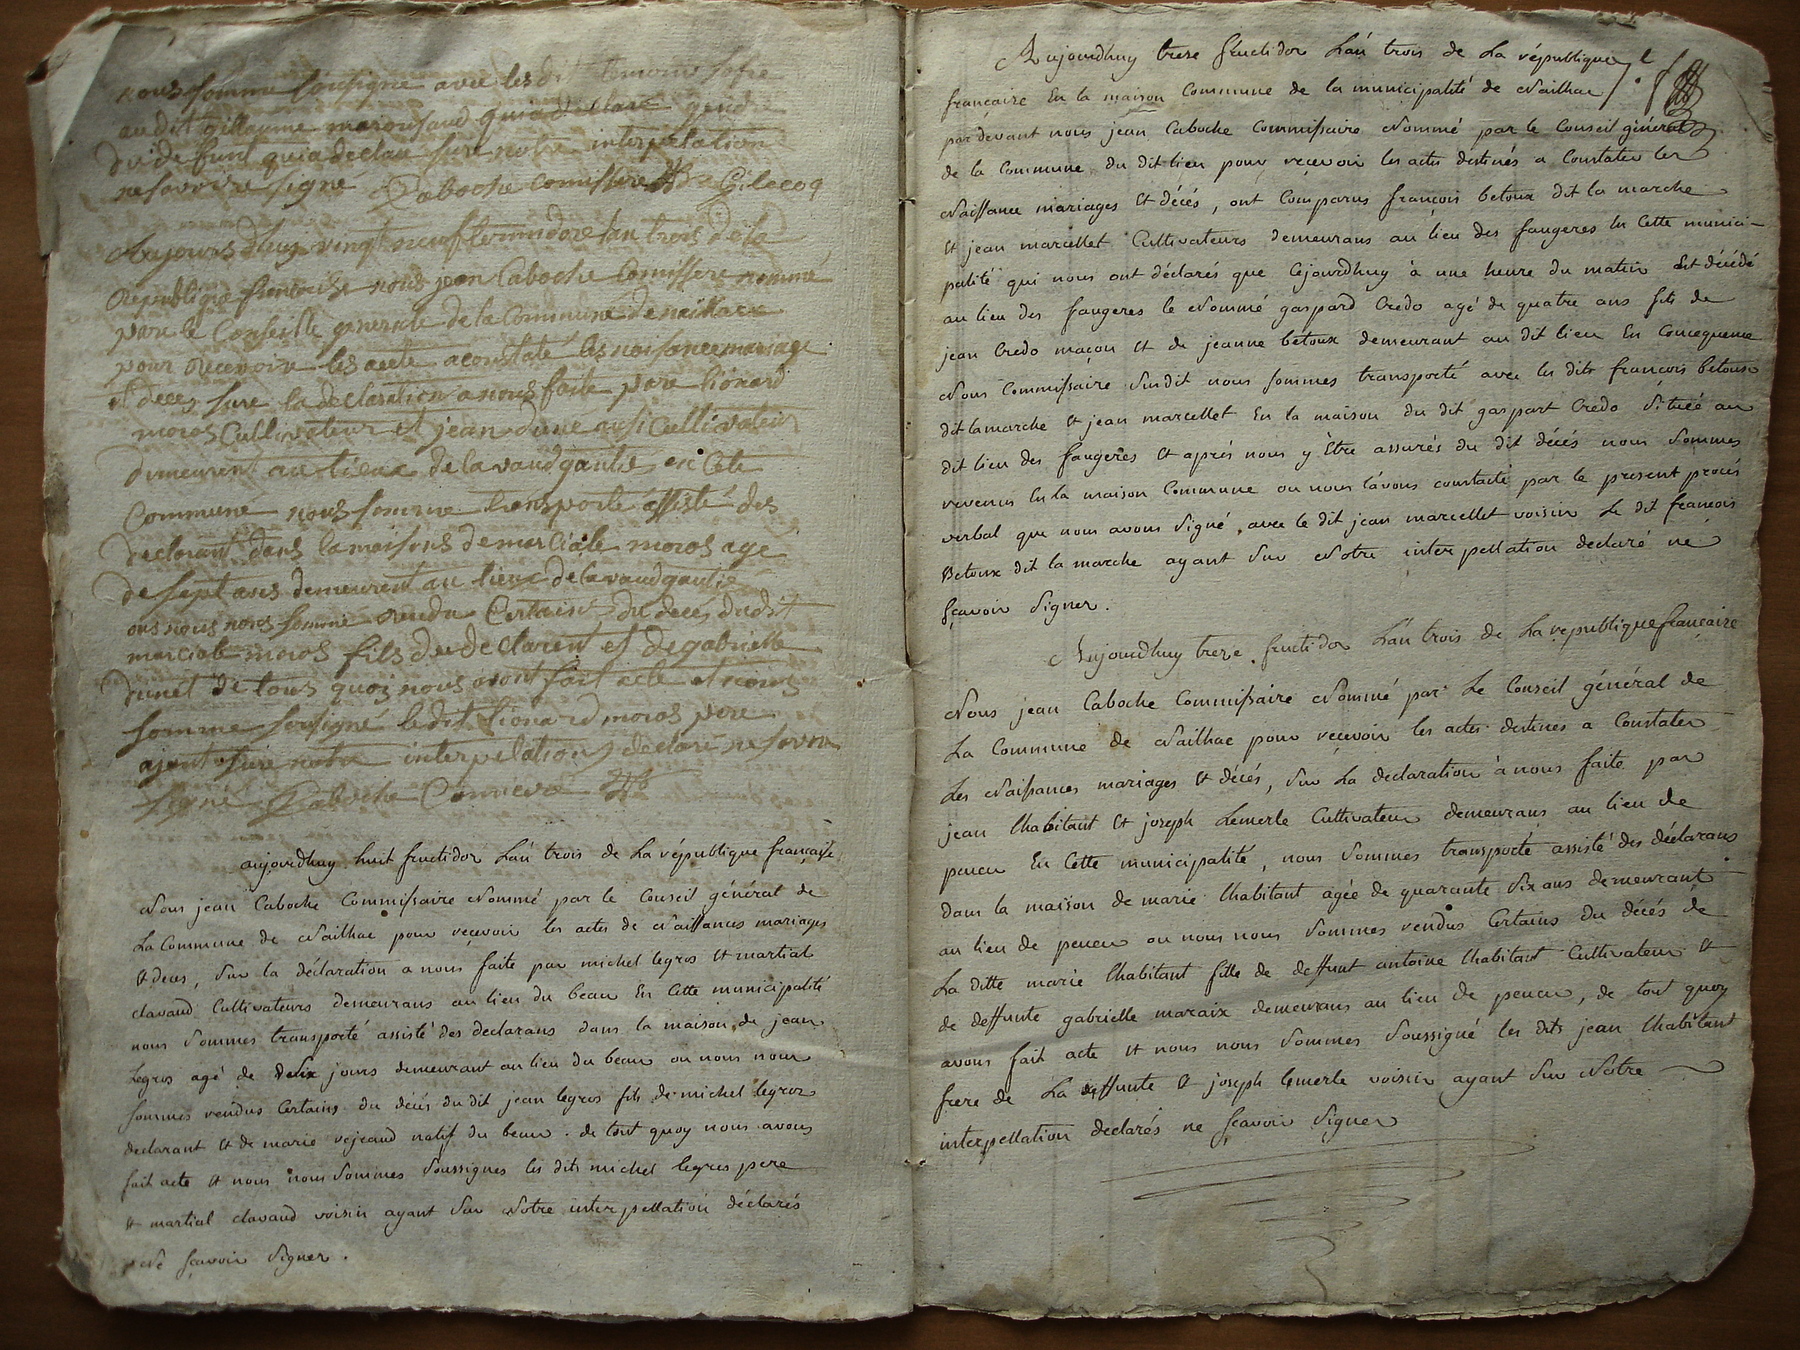 nous somme sousigne avec les dit temoins sofre
au dit gillaume marousaud qui a declare gendre
du defunt qui a declare sure notre interpelation
ne savoire signe Caboche comissere G. lecoq
Aujours dhuy vingt neuf termidore lan trois de la
Republique francoise nous jean Caboche Comissere nomme
pare le Conseille generale de la Commune de naillacx
pour recevoire les acte a constaté les naisance mariage
et deces sure la declaration a nous faite pare lionard
moros Cultivateur et jean dune ausi Cultivateur
demeurent au lieux de lavaudgautie en Cete
Commune nous somme transporte assisté des
declarant dans la maisons de marciale moros age
de sept ans demeurent au lieux de lavaudgautie
ous nous nous somme rendu Certains du deces du dit
marciale moros fils du declarent et de gabrielle
dunet de tous quoi nous avont fait acte et nous
somme sousigné le dit lionard moros pere
ajent sure notre interpelation declaré ne savoir
signé Caboche Comisere
aujourdhuy huit fructidor L'an trois de La république française
Nous jean Caboche Commissaire Nommé par le Conseil général de
La Commune de Nailhac pour reçevoir les actes de Naissances mariages
et deces, Sur la déclaration a nous faite par michel legros et martial
clavaud Cultivateurs demeurans au lieu du beau En Cette municipalité
nous Sommes transporté assisté des declarans dans la maison de jean
Legros agé de dix jours demeurant au lieu du beau ou nous nous
sommes rendus Certains du décés du dit jean legros fils de michel legros
declarant et de marie vejeaud natif du beau. de tout quoy nous avons
fait acte et nous nous Sommes Soussignes les dits michel legros pere
et martial clavaud voisin ayant Sur Notre interpellation déclarés
Ne sçavoir Signer.
Aujourdhuy treze fructidor L'an trois de La république
françaize En la maison Commune de la municipalité de Nailhac
par devant nous jean Caboche Commissaire Nommé par le Conseil général
de la Commune du dit lieu pour reçevoir les actes destinés a Constater les
Naissance mariages et décés, ont Comparus françois betoux dit la marche
et jean marcellet Cultivateurs demeurans au lieu des faugeres En Cette munici-
palité qui nous ont déclarés que Cejourdhuy à une heure du matin Est décédé
au lieu des faugeres le Nommé gaspard Credo agé de quatre ans fils de
jean Credo maçon et de jeanne betoux demeurant au dit lieu En Concequence
Nous Commissaire Susdit nous sommes transporté avec les dits françois betoux
dit lamarche et jean marcellet En la maison du dit gaspart Credo Situéé au
dit lieu des faugeres et aprés nous y Être assurés du dit décés nous Sommes
revenus En la maison Commune ou nous l'avons constaté par le present procés
verbal que nous avons Signé avec le dit jean marcellet voisin Le dit françois
Betoux dit la marche ayant Sur Notre interpellation declaré ne
sçavoir Signer.
Aujourdhuy treze fructidor L'an trois de La republique françaize
Nous jean Caboche Commissaire Nommé par Le Conseil général de
La Commune de Nailhac pour reçevoir les actes destines a Constater
Les Naissances mariages et décés, Sur La declaration à nous faite par
jean Chabitant et joseph Lemerle Cultivateur demeurans au lieu de
peucu En Cette municipalité, nous Sommes transporté assisté des déclarans
dans la maison de marie Chabitant agée de quarante Six ans demeurant
au lieu de peucu ou nous nous Sommes rendus Certains du décés de
La ditte marie Chabitant fille de deffunt antoine Chabitant Cultivateur et
de deffunte gabrielle maraix demeurans au lieu de peucu, de tout quoy
avons fait acte et nous nous Sommes Soussigné les dits jean Chabitant
frere de La deffunte et joseph lemerle voisin ayant Sur Notre
interpellation declarés ne sçavoir Signer